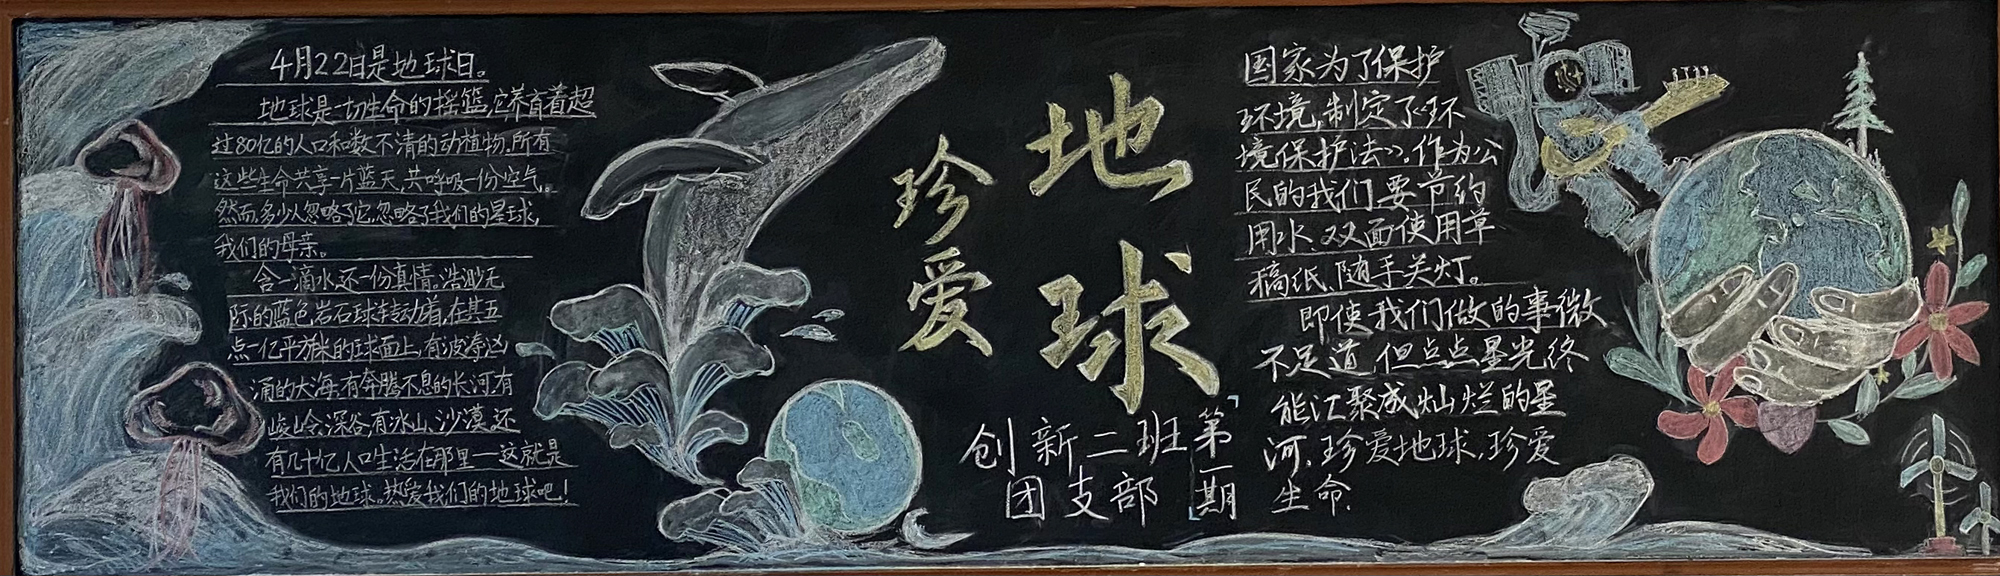 4月22日是地球日。
地球是一切生命的摇篮,它养育着超
过80亿的人口和数不清的动植物.所有
这些生命共享一片蓝天,共呼吸一份空气。
然而,多少人忽略了它,忽略了我们的星球,
我们的母亲。
含一滴水还一份真情。浩渺无
际的蓝色岩石球转动着,在其五
点一亿平方米的球面上,有波涛汹
涌的大海,有奔腾不息的长河有
峻岭、深谷,有冰山、沙漠,还
有几十亿人口生活在那里一这就是
我们的地球。热爱我们的地球吧!
珍爱
地球
创新二班
团支部
第一期
国家为了保护
环境,制定了《环
境保护法》。作为公
民的我们要节约
用水 双面使用草
稿纸,随手关灯。
即使我们做的事微
不足道,但点点星光,终
能汇聚成灿烂的星
河,珍爱地球,珍爱
生命.